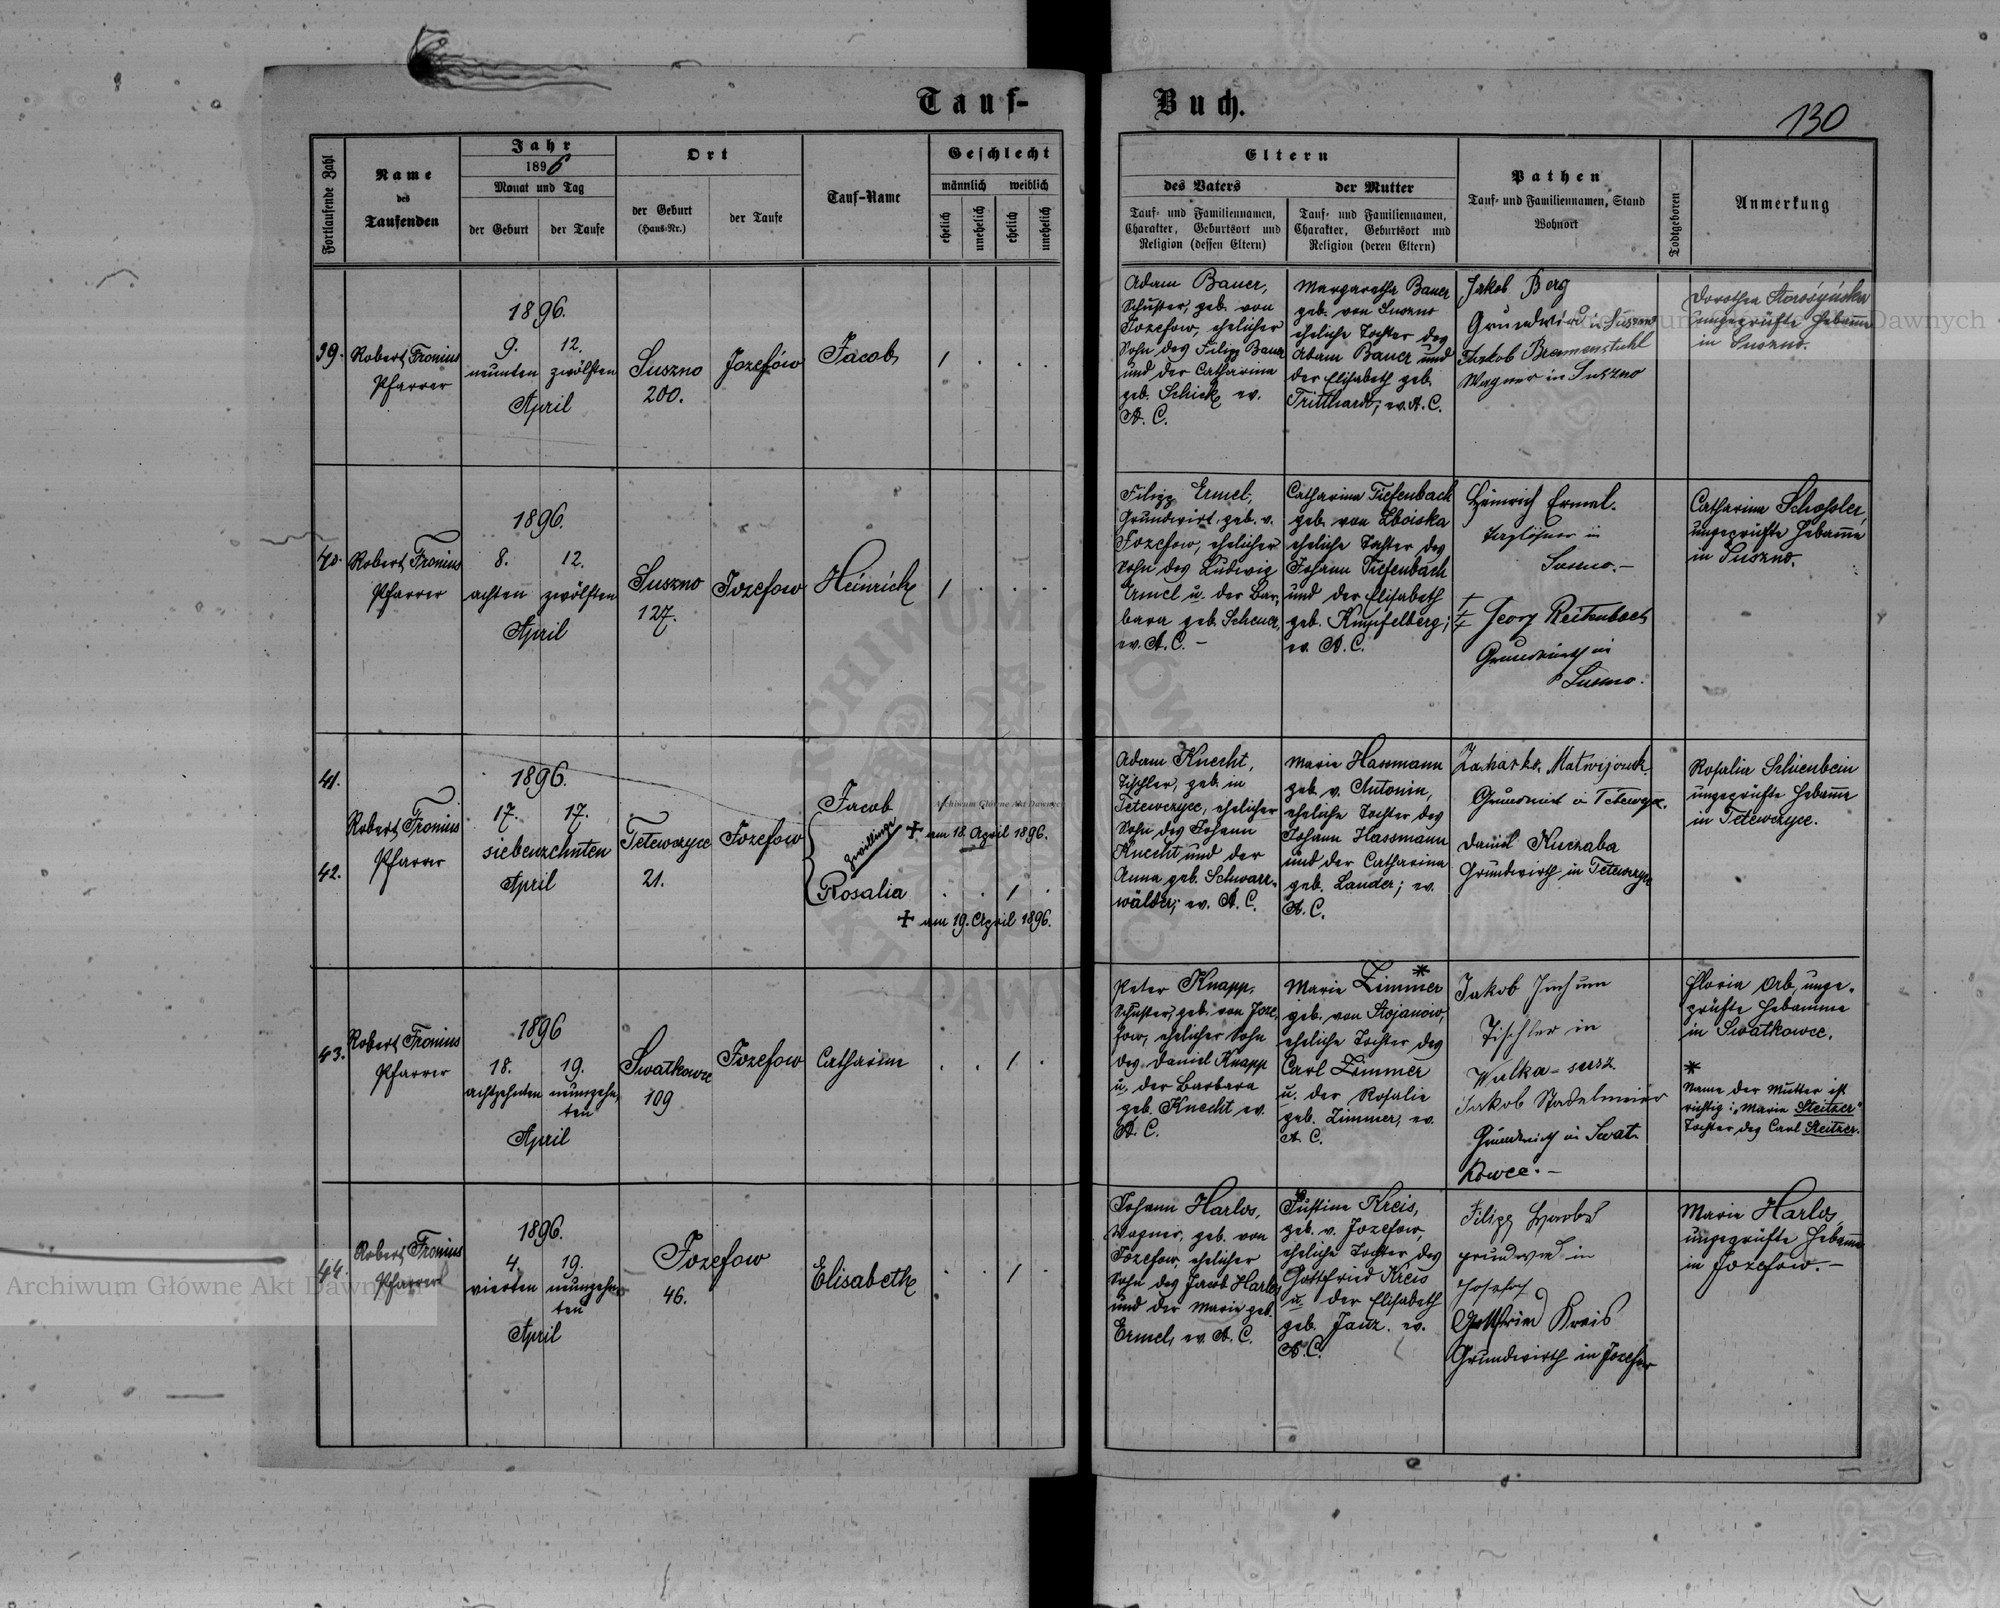 Tauf-
Buch.
130
Fortlaufende Zahl
Name
des
Taufenden
Jahr
1896
Monat und Tag
der Geburt
der Taufe
Ort
der Geburt
(Haus-Nr.)
der Taufe
Tauf-Name
Geschlecht
männlich
weiblich
ehelich
unehelich
ehelich
unehelich
Eltern
des Vaters
Tauf- und Familiennamen,
Charakter, Geburtsort und
Religion (dessen Eltern)
der Mutter
Tauf- und Familiennamen,
Charakter, Geburtsort und
Religion (deren Eltern)
Pathen
Tauf- und Familiennamen, Stand
Wohnort
Todtgeboren
Anmerkung
39.
Robert Fronius
Pfarrer
1896.
9.
neunten
12.
zwölften
April
Suszno
200.
Jozefów
Jacob
1 . . .
Adam Bauer,
Schuster, geb. von
Jozefow, ehelicher
Sohn des Filipp Bauer
und der Catharina
geb. Schick ev.
A. C.
Margaretha Bauer
geb. von Suszno
eheliche Tochter des
Adam Bauer und
der Elisabeth geb.
Tritthardt; ev. A. C.
Jakob Berg
Grundwirt in Suszno
Jakob Bremenstuhl
Wagner in Suszno
Dorothea
ungeprüfte Hebamme
in Suszno.
40.
Robert Fronius
Pfarrer
1896.
8.
achten
12.
zwölften
April
Suszno
127.
Jozefow
Heinrich
1 . . .
Filipp Ermel,
Grundwirt, geb. v.
Jozefow, ehelicher
Sohn des Ludwig
Ermel u. der Bar-
bara geb. Scheuer,
ev. A. C. -
Catharina Tiefenbach
geb. von Zboiska
eheliche Tochter des
Johann Tiefenbach
und der Elisabeth
geb. Knipfelberg;
ev. A. C.
Heinrich Ermel.
Taglöhner in
Suszno. -
Georg Reitenbach
Grundwirth in
Suszno.
Catharina Schossler,
ungeprüfte Hebamme
in Suszno.
41.
42.
Robert Fronius
Pfarrer
1896.
17. 17.
siebenzehnten
April
Tetewczyce
21.
Jozefow
Jacob
1
+ am 18. April 1896.
Zwillinge
Rosalia
. . 1 .
+ am 19. April 1896.
Adam Knecht,
Tischler, geb. in
Tetewczyce, ehelicher
Sohn des Johann
Knecht und der
Anna geb. Schwarz-
wälder; ev. A. C.
Marie Hassmann
geb. v. Antonin,
eheliche Tochter des
Johann Hassmann
und der Catharina
geb. Lander; ev.
A. C.
Grundwirt in
Daniel Kuczaba
Grundwirth in Tetewczyce
Rosalia Schienbein
ungeprüfte Hebamme
in Tetewczyce.
43.
Robert Fronius
Pfarrer
1896
18.
achtzehnten
19.
neunzehn-
ten
April
Swatkowce
109
Jozefow
Catharina
. . 1 .
Peter Knapp,
Schuster, geb. von Joze-
fow, ehelicher Sohn
des Daniel Knapp
u. der Barbara
geb. Knecht ev.
A. C.
Marie Zimmer *
geb. von Stojanow,
eheliche Tochter des
Carl Zimmer
u. der Rosalie
geb. Zimmer, ev.
A. C.
Jakob
Tischler in
Jakob Stadelmeier
Grundwirth in Swat-
kowce. -
Floria Orb, unge-
prüfte Hebamme
in Swatkowce.
*
Name der Mutter ist
richtig: "Marie Steitzer"
Tochter des Carl Steitzer.
44.
Robert Fronius
Pfarrer
1896.
4.
vierten
19.
neunzehn-
ten
April
Jozefow
46.
Elisabeth
. . 1 .
Johann Harlos,
Wagner, geb. von
Jozefow, ehelicher
Sohn des Jacob Harlos
und der Marie geb.
Ermel, ev. A. C.
Justine Kreis,
geb. v. Jozefow,
eheliche Tochter des
Gottfried Kreis
u. der Elisabeth
geb. Janz. ev.
A. C.
Filipp
Grundwirt in
Gottfried Kreis
Grundwirth in Jozefow
Marie Harlos
ungeprüfte Hebamme
in Jozefow. -
Archiwum Główne Akt Dawnych